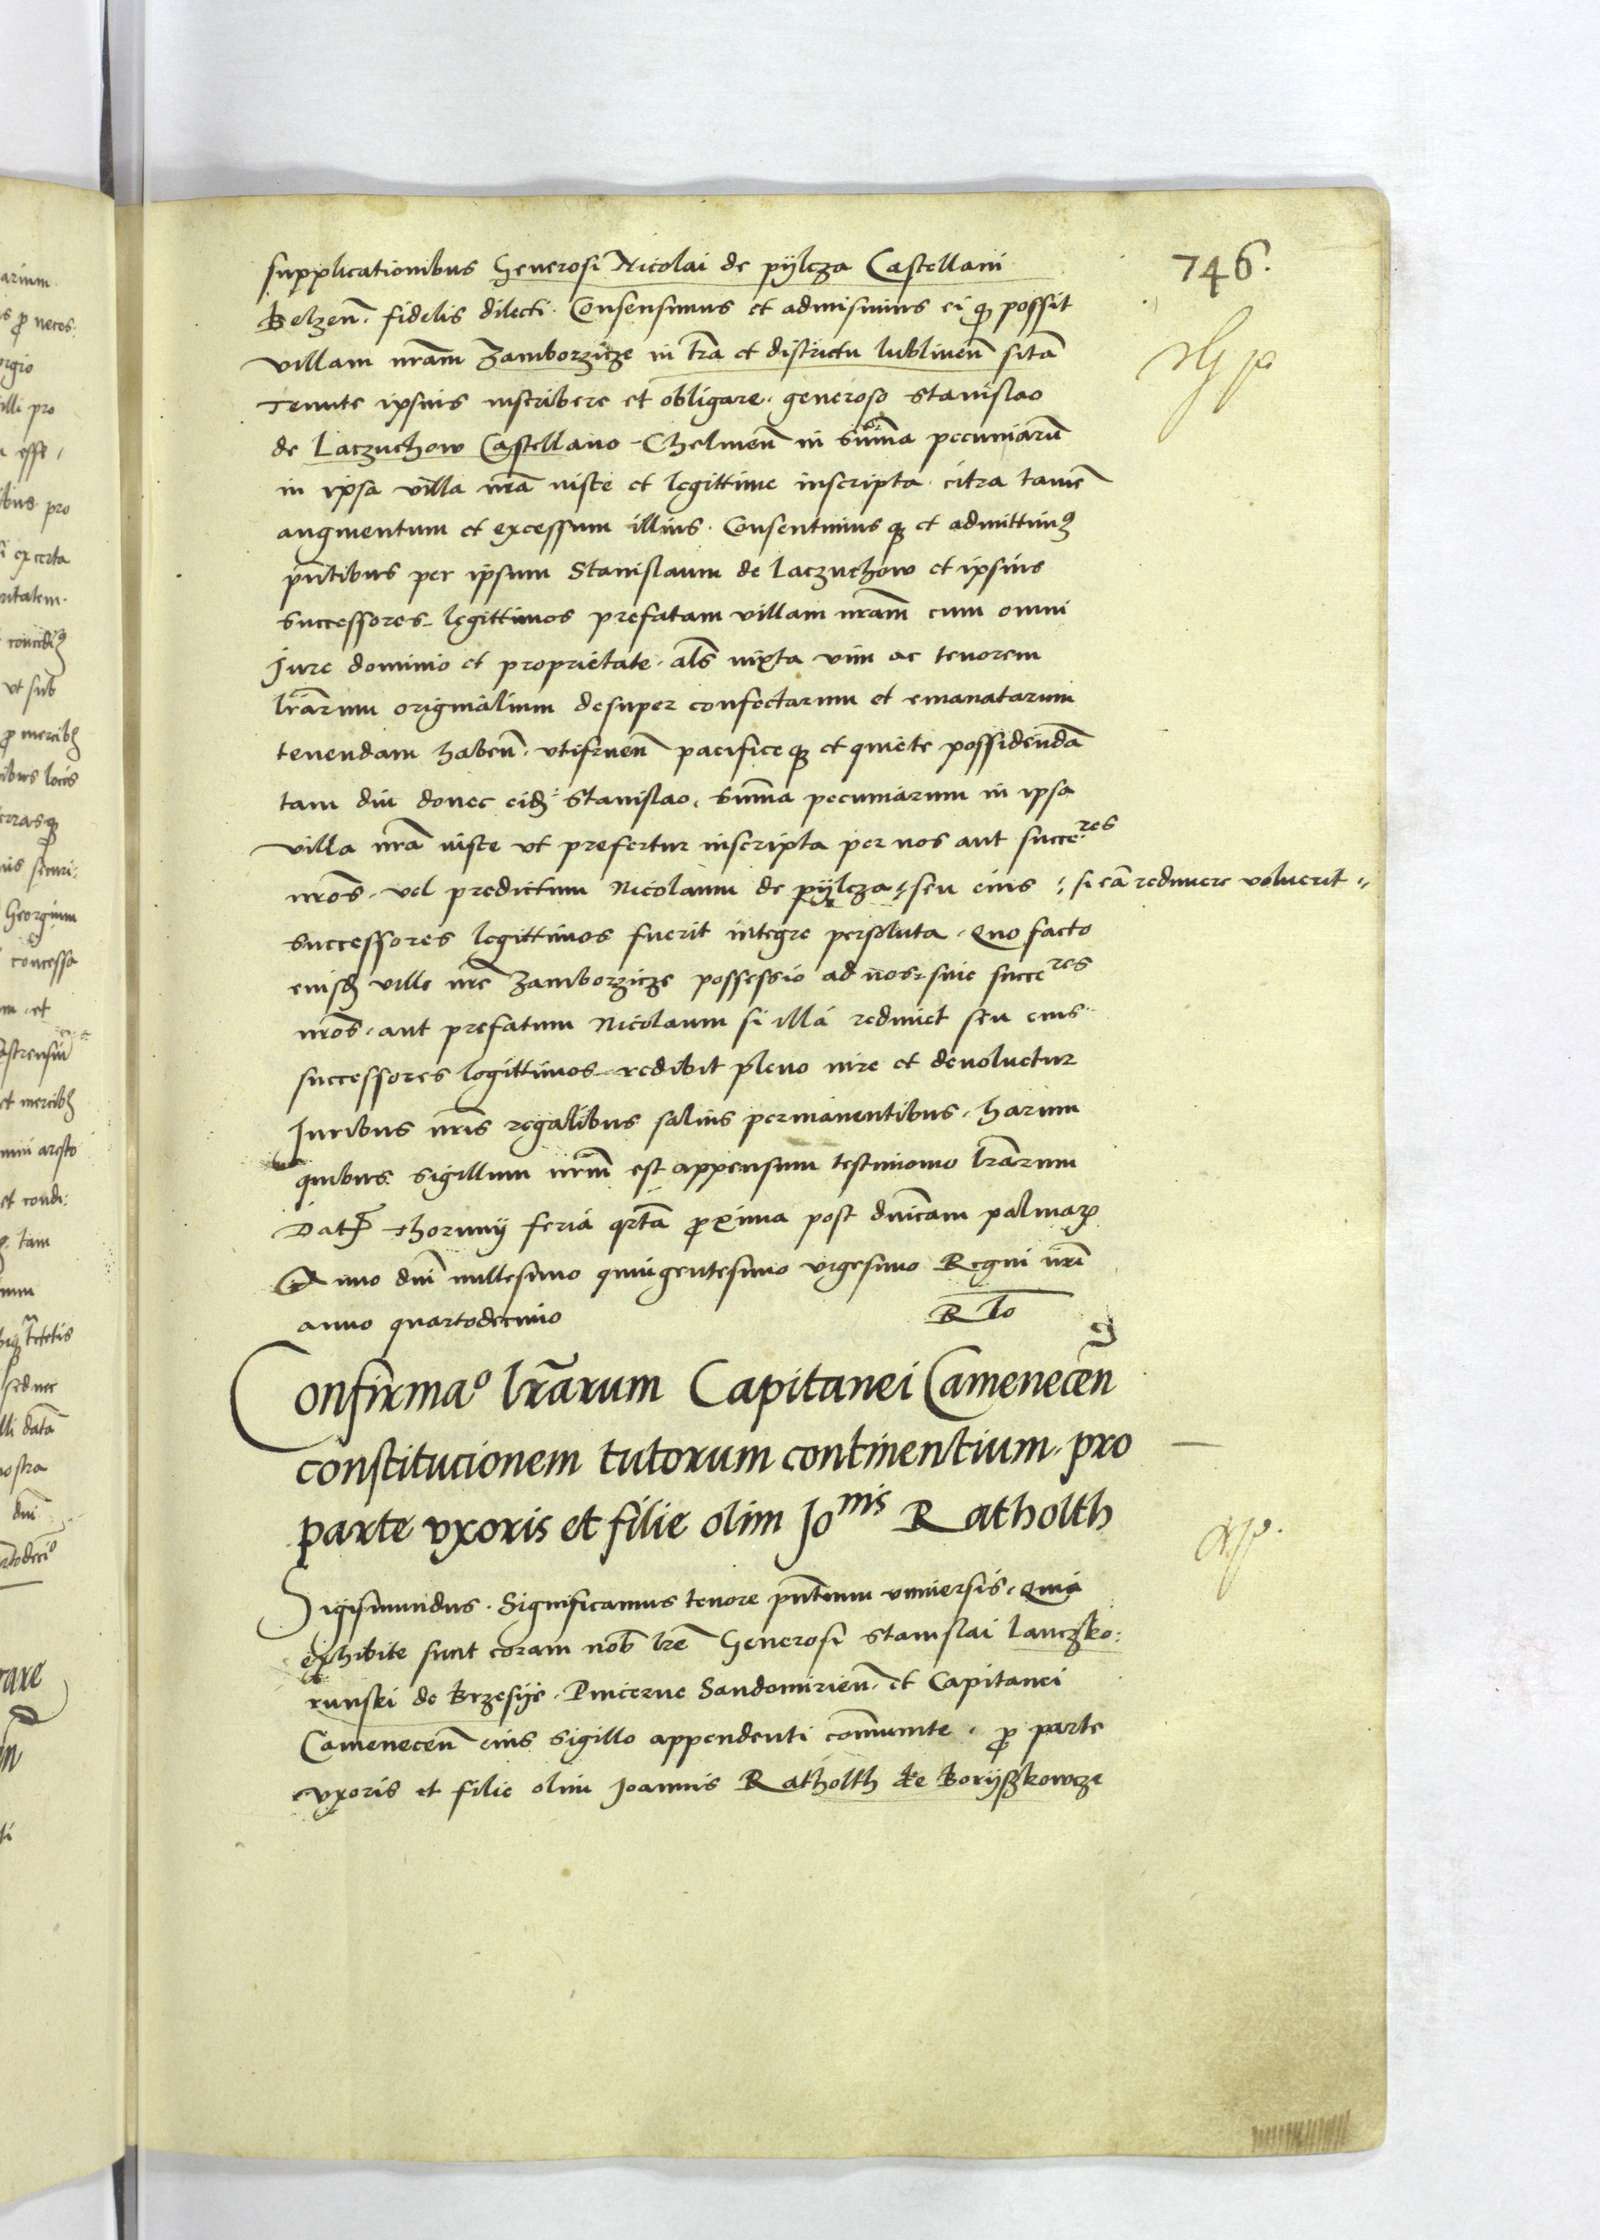 746.
supplicationibus Generosi Nicolai de pÿlcza Castellani
Belzen̄. fidelis dilecti. Consensimus et admisimus ei ꝙ possit
villam nr̄am Zamborzicze in tr̄a et districtu lublinen̄ sitā
Tenute ipsius inscribere et obligare. generoso Stanislao
de Laczuchow Castellano Chelmen̄ in sum̄a pecuniarū
in ipsa villa nr̄a iuste et legittime inscripta citra tamē
augmentum et excessum illius. Consentimusqꝫ et admittimꝰ
pn̄tibus per ipsum Stanislaum de Laczuchow et ipsius
successores legittimos prefatam villam nr̄am cum omni
Jure dominio et proprietate. al̄s iuxta vim ac tenorem
lr̄arum originalium desuper confectarum et emanatarum
tenendam haben̄. vtifruen̄ pacificeqꝫ et quiete possidendā
tam diu donec eidꝫ Stanislao. sum̄a pecuniarum in ipsa
villa nr̄a iuste vt prefertur inscripta per nos aut succeʳᵉˢ
nr̄os. vel predictum Nicolaum de pÿlcza seu eius si eā redimere voluerit
successores legittimos fuerit integre persoluta. Quo facto
eiusdꝫ ville nr̄e Zamborzicze possessio ad nos siue succeʳᵉˢ
nr̄os. aut prefatum Nicolaum si illā redimet seu eius
successores legittimos redibit pleno iure et deuoluetur
Juribus nr̄is regalibus saluis permanentibus. harum
quibus sigillum nr̄m est appensum testimonio lr̄arum
Dat̄ Thorunij feria qr̄ta ꝓxima post dn̄icam palmaꝝ
Anno dn̄i millesimo quingentesimo vigesimo Regni nr̄i
anno quartodecimo
R to
Confirmaº lr̄arum Capitanei Camenecen̄
constitucionem tutorum continentium pro
parte vxoris et filie olim Joⁿⁱˢ Ratholth
Sigismundus. Significamus tenore pn̄tium vniuersis. Quia
exhibite sunt coram nob̄ lr̄e Generosi Stanislai Lanczko:
runski de Brzesÿe. Pincerne Sandomirien̄. et Capitanei
Camenecen̄ eius sigillo appendenti com̄unite. ꝓ parte
vxoris et filie olim Joannis Ratholth de Borÿszkowcze